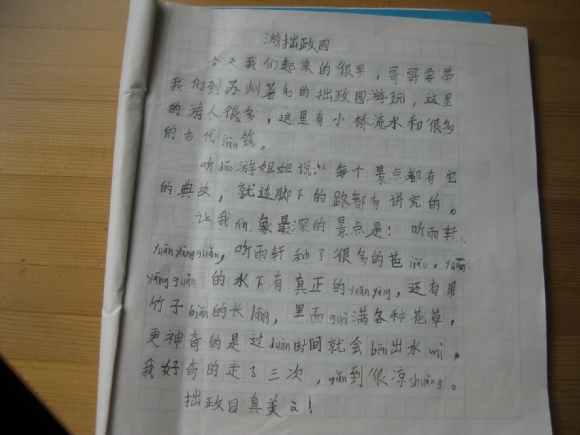 游拙政园
今天我们起来的很早，哥哥要带
我们到苏州著名的拙政园游玩，这里
的游人很多，这里有小桥流水和很多
的古代jiàn筑。
听dǎo游姐姐说：每个景点都有它
的典故，就连脚下的路都有讲究的。
让我们象最深的景点是：听雨轩、
yuān yāng guǎn，听雨轩种了很多的芭jiāo，yuān
yāng guǎn的水下有真正的yuān yāng，还有用
竹子biān的长láng，里面guà满各种花草，
更神奇的是过duàn时间就会pēn出水wù。
我好奇的走了三次，gǎn到很凉shuǎng。
拙政园真美a！